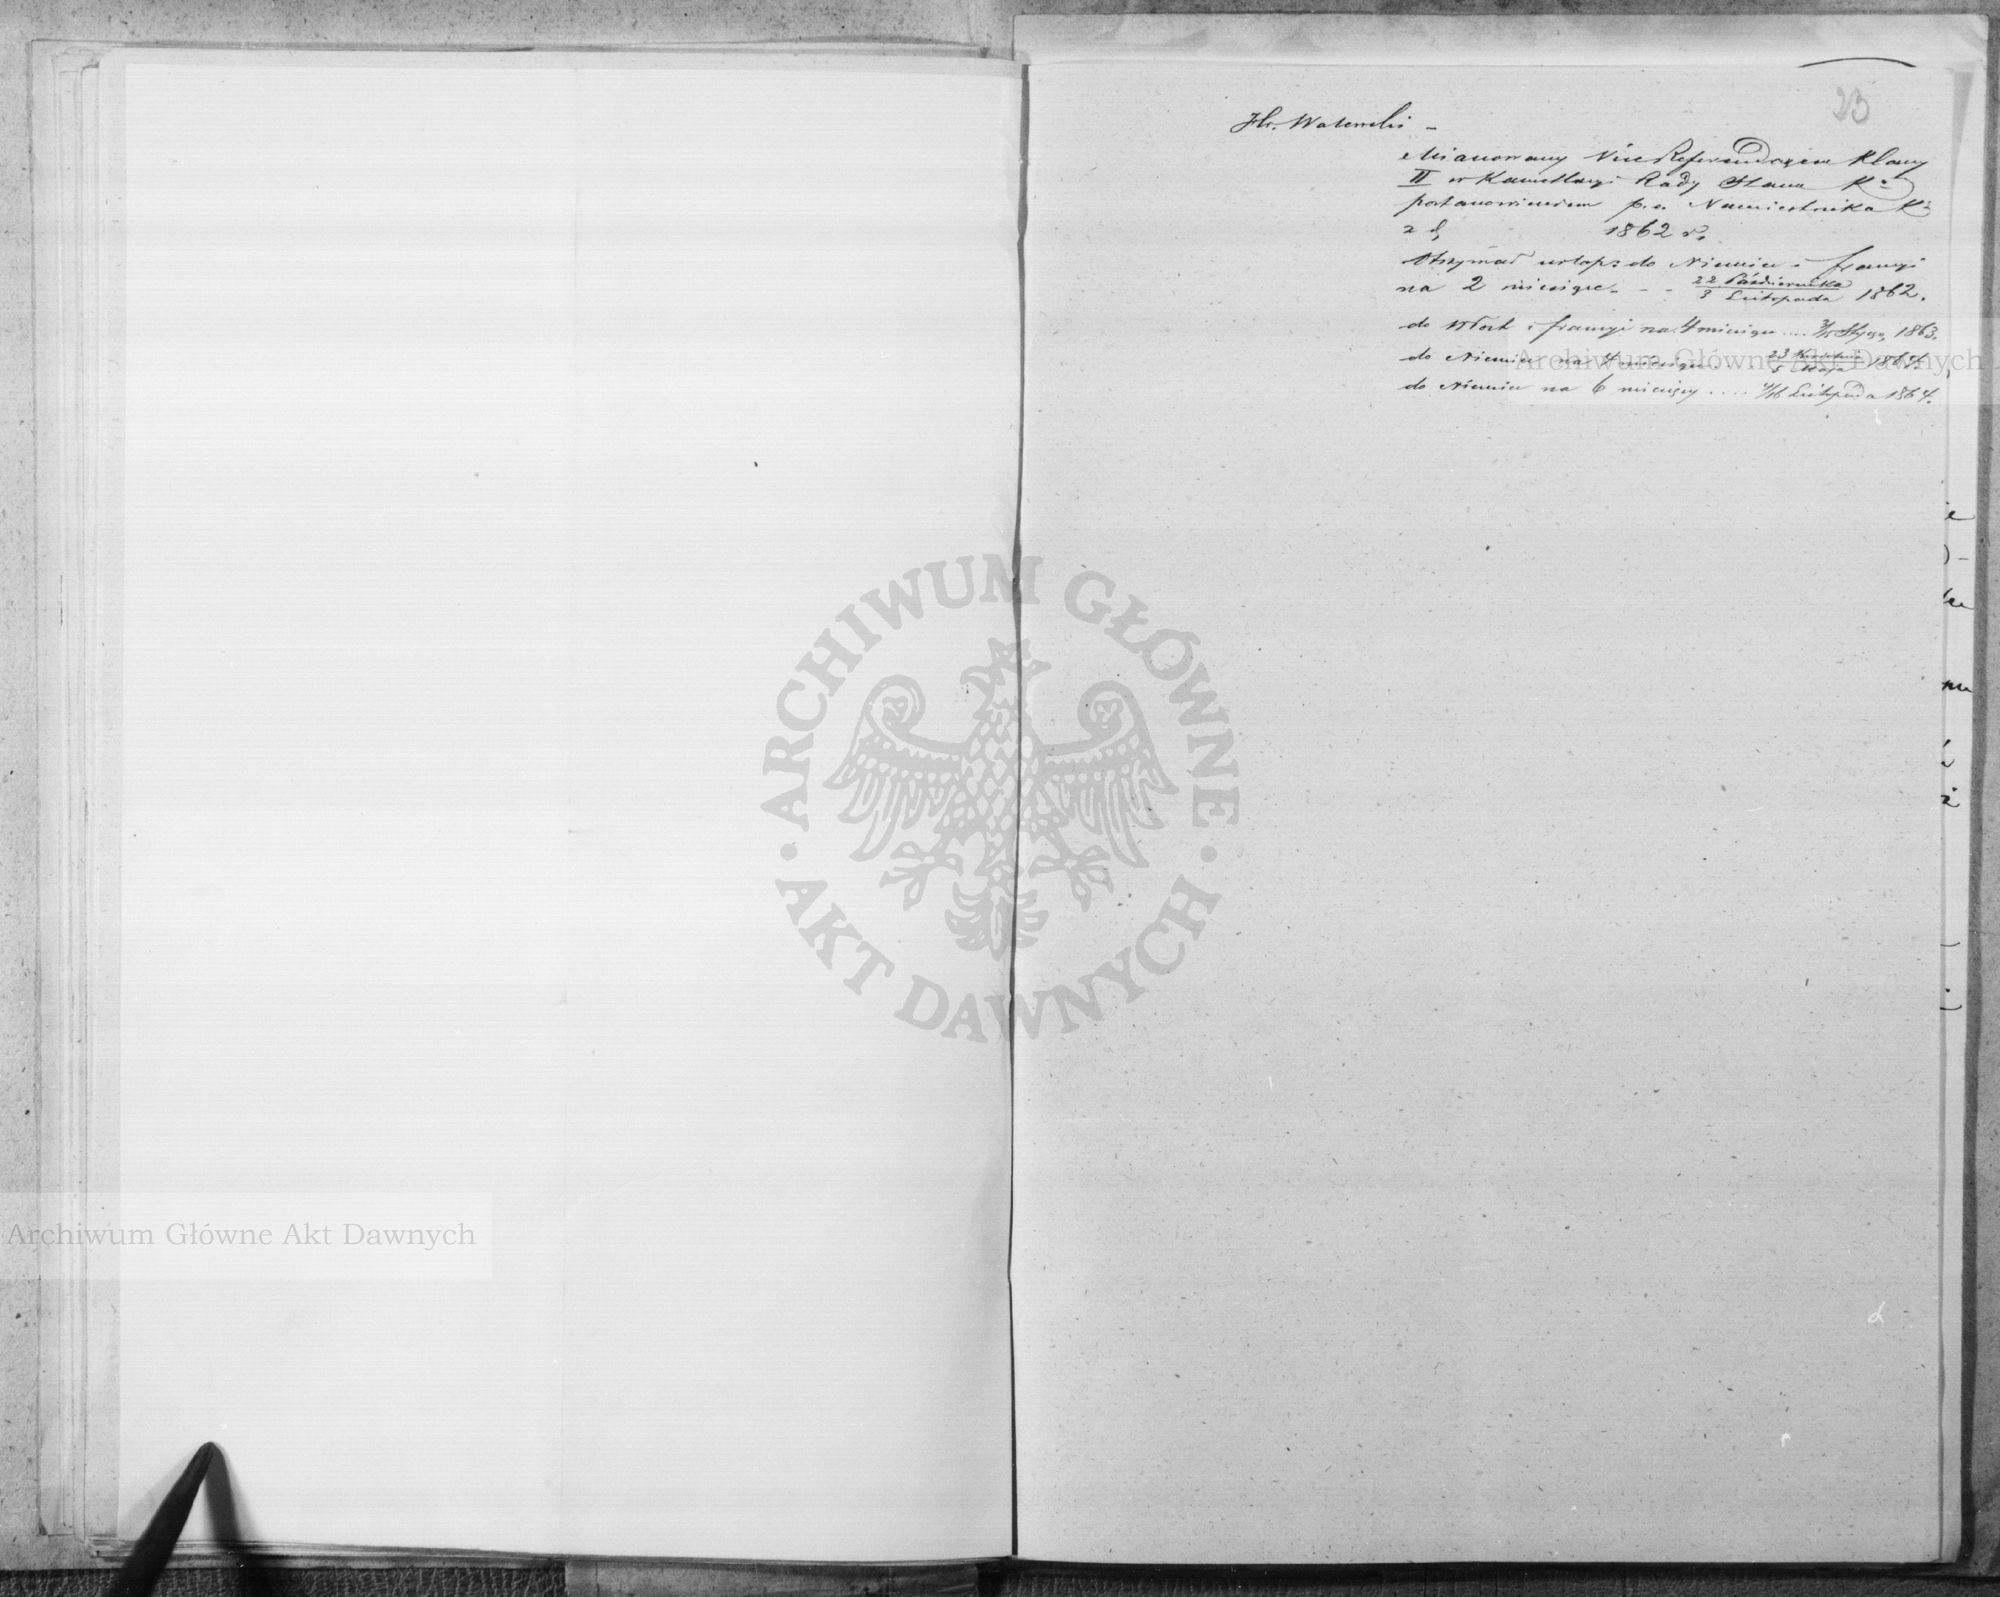 23
Hr. Walewski –
Mianowany Vice Referendarzem Klassy
II w Kancellaryi Rady Stanu Kr.
postanowieniem p. o. Namiestnika Kr.
z d. 1862 r.
Otrzymał urlop: do Niemiec i Francyi
na 2 miesiące - - - 22 Października / 3 Listopada 1862.
do Włoch i Francyi na 4 miesiące .... 3/15 Stycz. 1863.
do Niemiec na 4 miesiące . . . 23 Kwietnia / 5 Maja 1864.
do Niemiec na 6 miesięcy .... 4/16 Listopada 1864.
Archiwum Główne Akt Dawnych
ARCHIWUM GŁÓWNE
· AKT DAWNYCH ·
Archiwum Główne Akt Dawnych